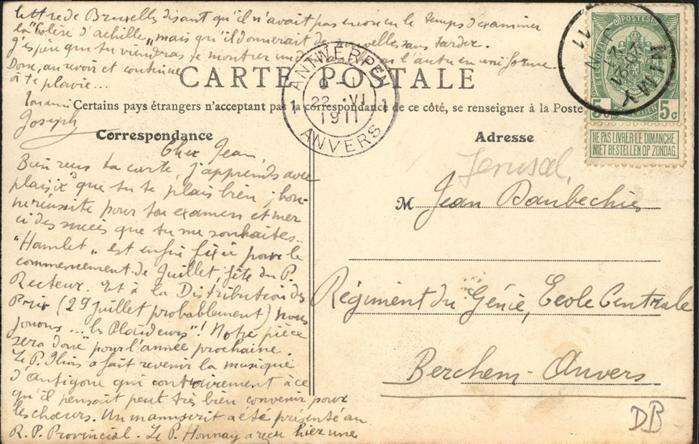 lettre de Bruxelles disant qu'il n'avait pas encore eu le temps d'examiner
la "Colère d'Achille", mais qu'il donnerait de nouvelles sans tarder.
J'espère que tu viendras te montrer un en uniforme
Donc, au revoir et continue
à te plaire...
Joseph
CARTE POSTALE
Certains pays étrangers n'acceptant pas la correspondance de ce côté, se renseigner à la Poste
ANTWERPEN
22 VI
1911
ANVERS
NIMY
11
POSTES
5c
NE PAS LIVRER LE DIMANCHE
NIET BESTELLEN OP ZONDAG
Correspondance
Cher Jean,
Bien reçu ta carte, j'apprends avec
plaisir que tu te plais bien, bon-
ne réussite pour ton examen et mer-
ci des succès que tu me souhaites.
"Hamlet" est enfin fixé pour le
commencement de Juillet, fête du P.
Recteur. Et à la Distribution des
Prix (29 Juillet probablement) nous
jouons... les Plaideurs"! Notre pièce
sera donc pour l'année prochaine.
Le P. a fait revenir la musique
d'Antigone qui contrairement à ce
qu'il pensait peut très bien convenir pour
les chœurs. Un manuscrit a été présenté au
R. P. Provincial. Le P. a reçu hier une
Adresse
Jerusal.
M Jean Daubechies
Régiment du Génie, Ecole Centrale
Berchem-Anvers
DB